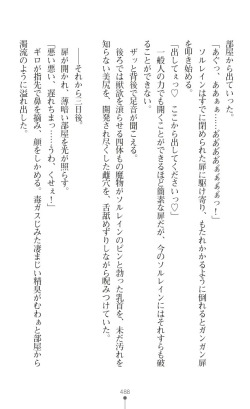 部屋から出ていった。
「あぐっ、あああぁ……ああああぁぁぁぁぁっ！」
　ソルレインはすでに閉められた扉に駆け寄り、もたれかかるように倒れるとガンガン扉
を叩き始める。
「出してぇっ♡　ここから出してくださいっ♡」
　一般人の力でも開くことができるほど簡素な扉だが、今のソルレインはそれすらも破
ることができない。
　ザッと背後で足音が聞こえる。
　後ろでは獣欲を滾らせる四体もの魔物がソルレインのピンと勃った乳首を、未だ汚れを
知らない美尻を、開発され尽くした雌穴を、舌舐めずりしながら睨みつけていた。
――それから三日後。
　扉が開かれ、薄暗い部屋を光が照らす。
「悪い悪い、遅れちまっ……うわ、くせぇ！」
　ギロが指先で鼻を摘み、顔をしかめる。毒ガスじみた凄まじい精臭がむわぁと部屋から
濁流のように溢れ出した。
488